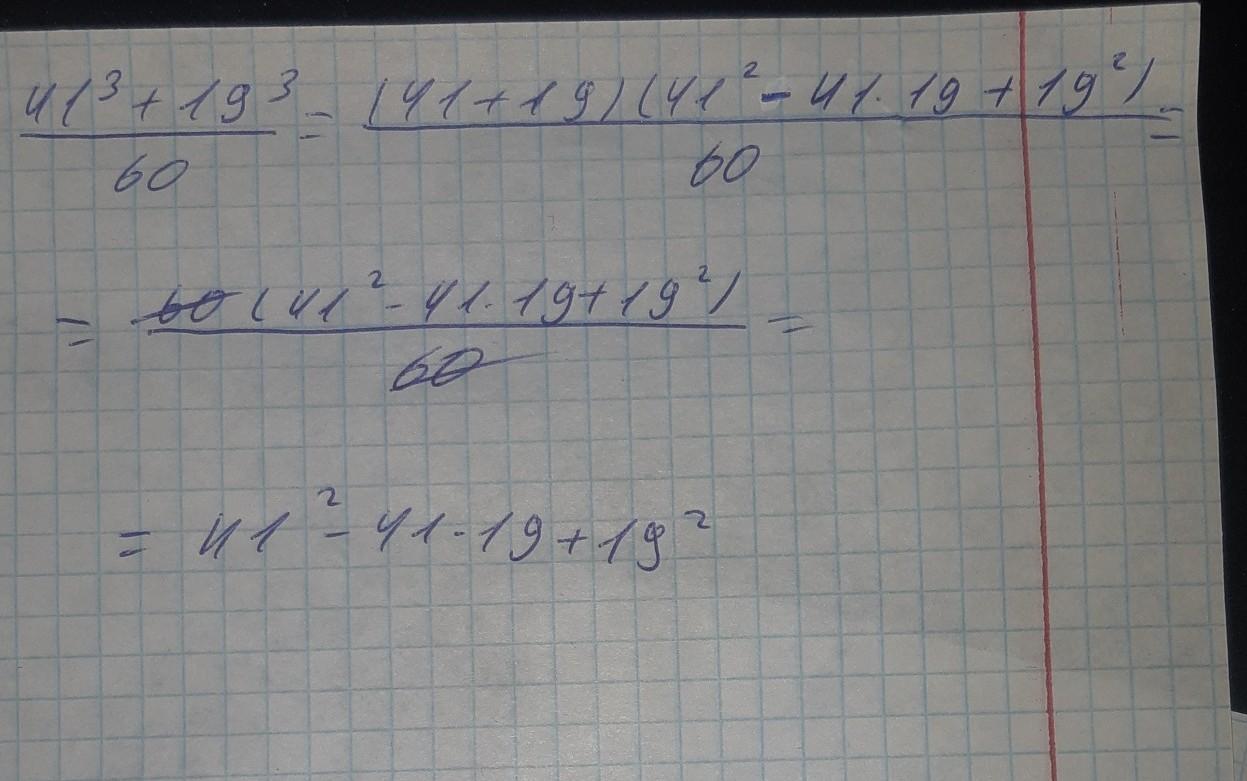 41³ + 19³ / 60 = (41 + 19)(41² - 41 · 19 + 19²) / 60 =
= 60(41² - 41 · 19 + 19²) / 60 =
= 41² - 41 · 19 + 19²